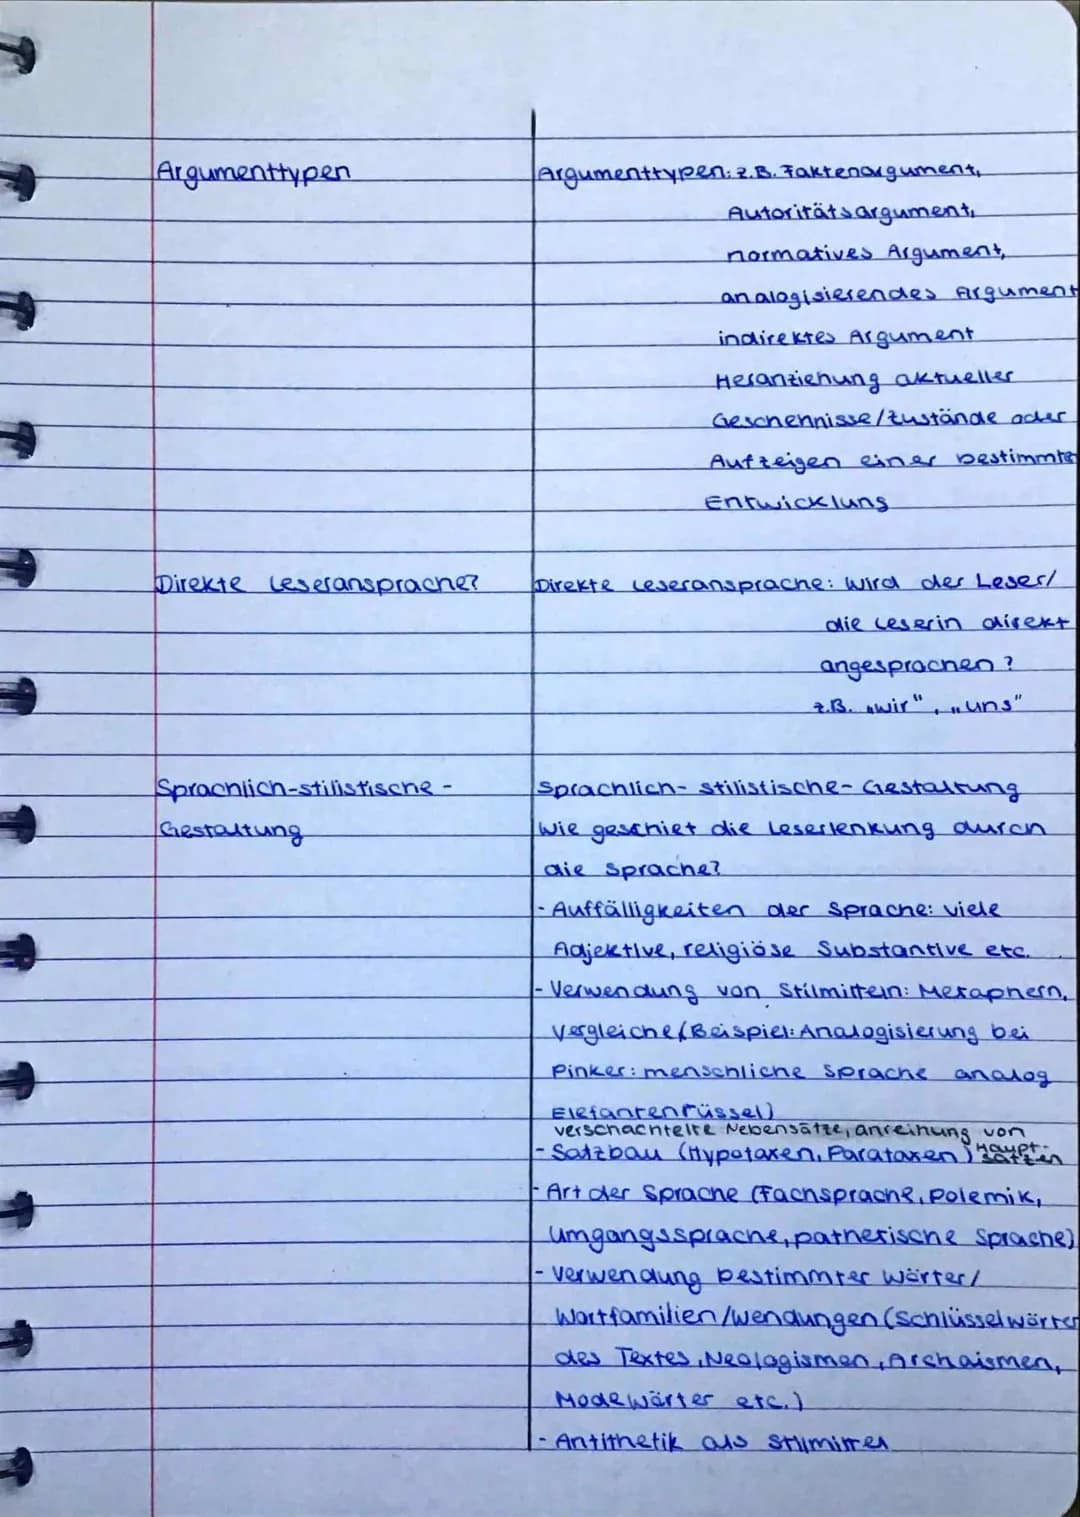 Argumenttypen
Argumenttypen: z.B. Faktenargument,
Autoritätsargument,
normatives Argument,
analogisierendes Argument
indirektes Argument
Heranziehung aktueller
Geschehnisse/Zustände oder
Aufzeigen einer bestimmte
Entwicklung
Direkte Leseransprache?
Direkte Leseransprache: Wird der Leser/
die Leserin direkt
angesprochen?
z.B. „wir", „uns"
Sprachlich-stilistische-
Gestaltung
Sprachlich-stilistische-Gestaltung
Wie geschiet die Leserlenkung durch
die Sprache?
- Auffälligkeiten der Sprache: viele
Adjektive, religiöse Substantive etc.
- Verwendung von Stilmitteln: Metaphern,
Vergleiche (Beispiel: Analogisierung bei
Pinker: menschliche Sprache analog
Elefantenrüssel)
verschachtelte Nebensätze, anreihung von
- Satzbau (Hypotaxen, Parataxen) Haupt-
sätzen
- Art der Sprache (Fachsprache, Polemik,
Umgangssprache, pathetische Sprache)
- Verwendung bestimmter Wörter/
Wortfamilien/Wendungen (Schlüsselwörter
des Textes, Neologismen, Archaismen,
Modewörter etc.)
- Antithetik als Stilmittel